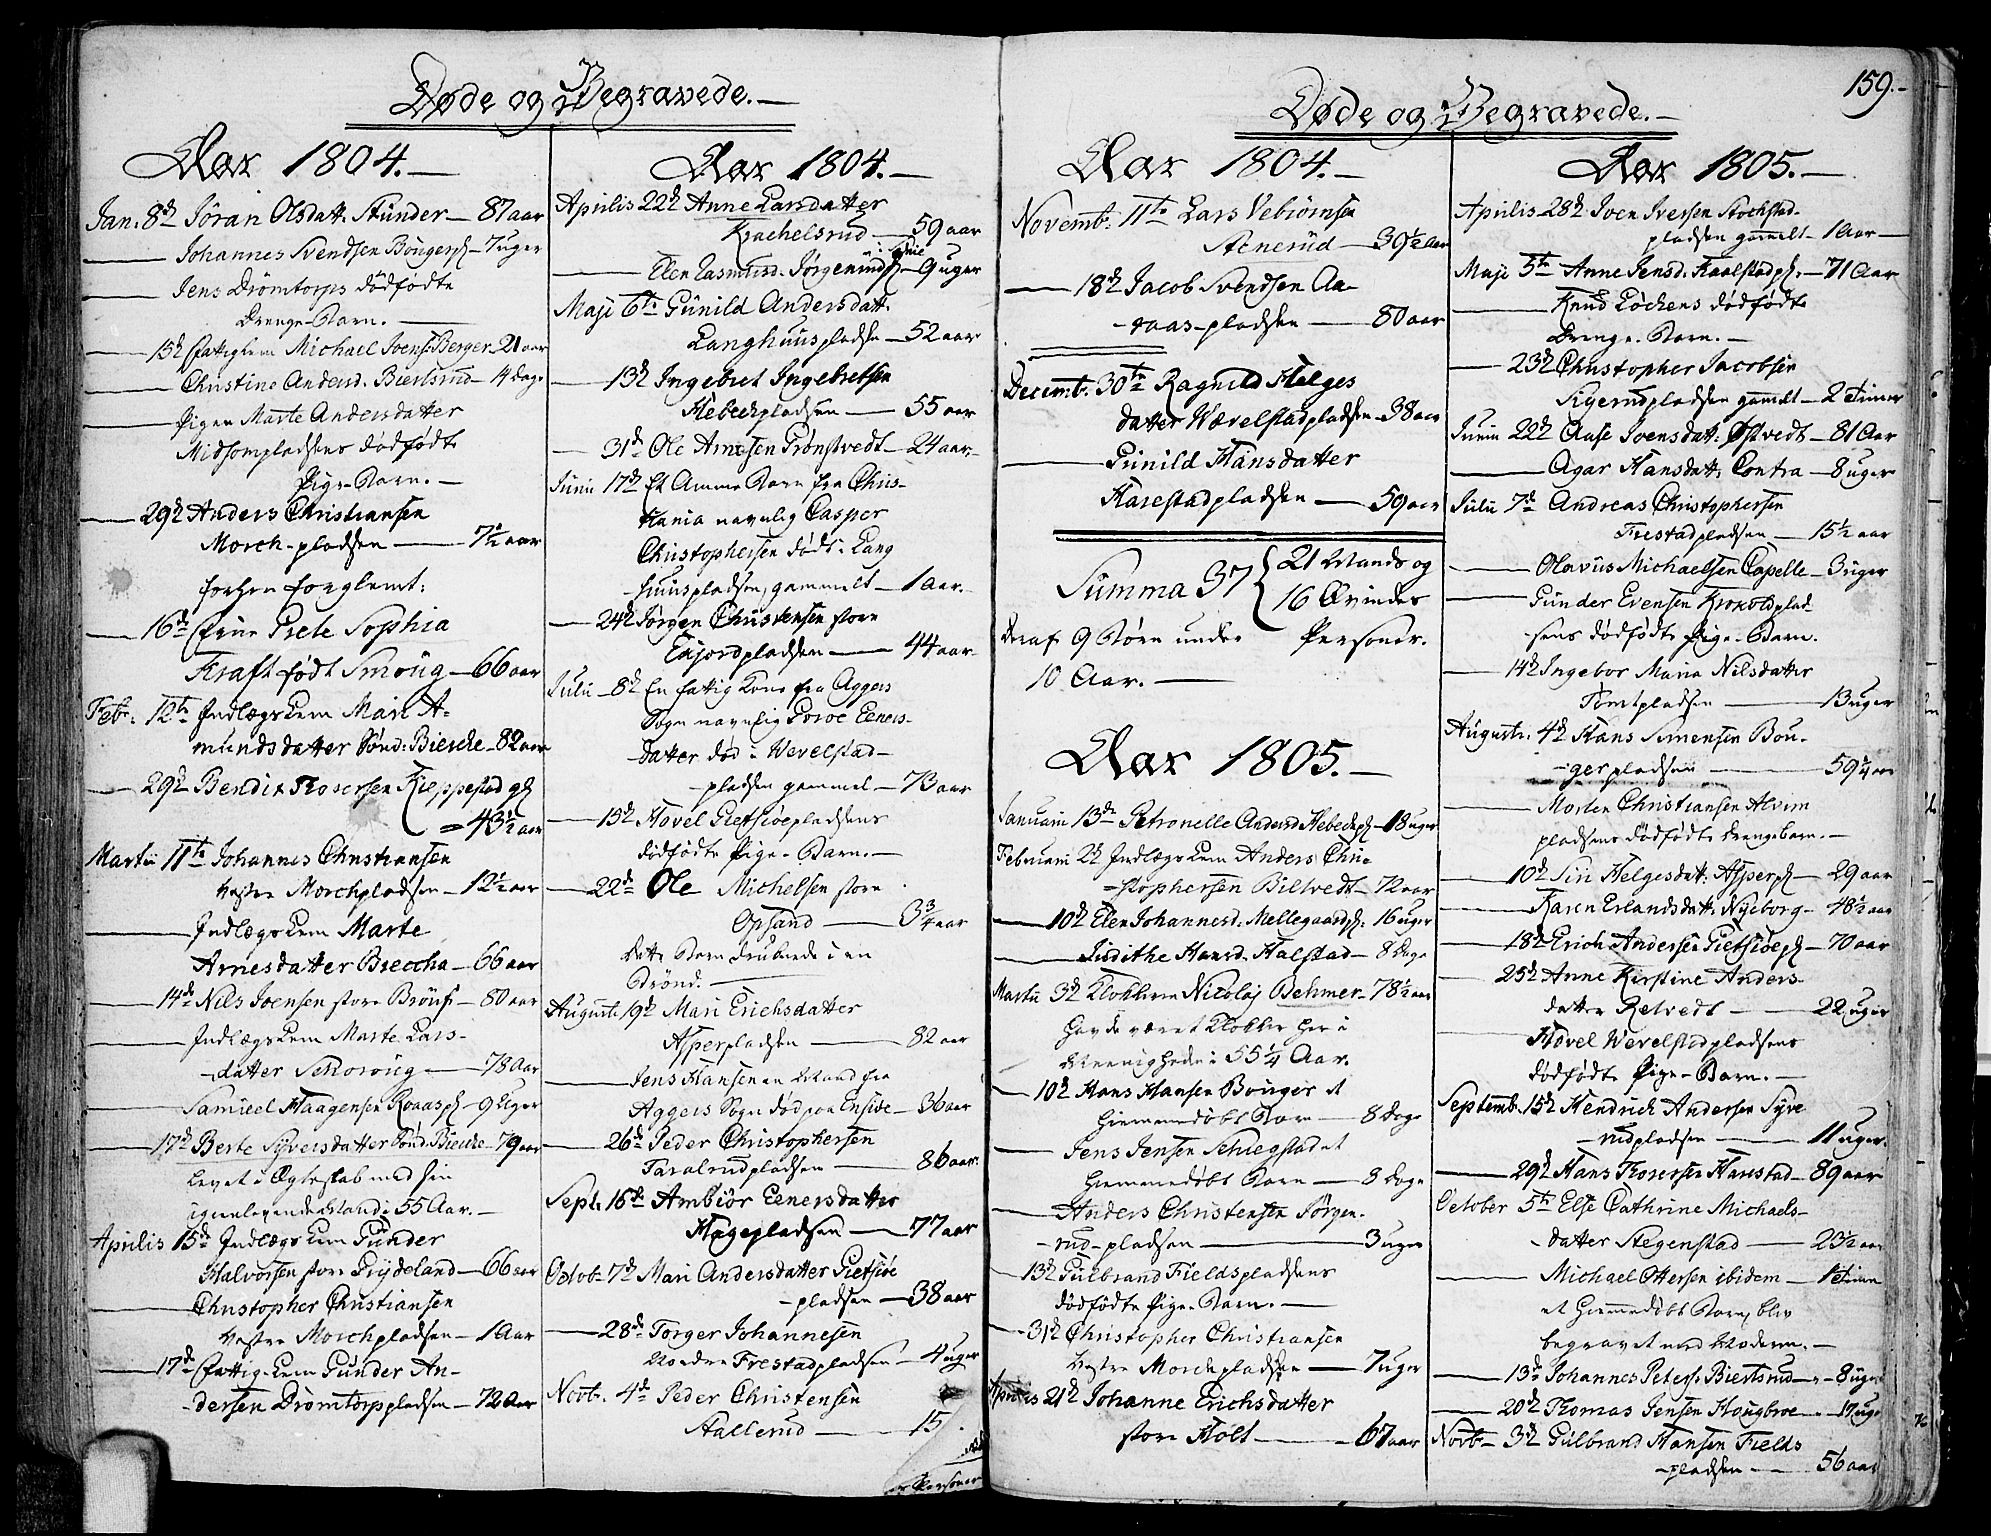 Døde og Begravede.
Aar 1804.
Jan. 8de Jøran Olsdatt. Stunder 87 aar
Johannes Svendsen Bøngerpl. 7 uger
Jens Drømtorps dødfødte
Drenge-Barn.
15d Fattiglem Michael Joens. Berger 21 aar
Christine Andersd. Biertsrud 14 dage
Pigen Marte Andersdatter
Midsempladsens dødfødte
Pige-Barn.
29d Anders Christiansen
Morch-pladsen 7½ aar
forhen forglemt:
16de Frue Grete Sophia
Kraft født Smoug 66 aar
Febr. 12te Indlægslem Mari A-
mundsdatter Sønd: Biercke 82 aar
29d Bendix Thorersen Kieppestad gl
43½ aar
Martii 11te Johannes Christiansen
Vestre Morchpladsen 12½ aar
Indlægslem Marte
Arnesdatter Breccha 66 aar
14de Nils Joensen store Brønf 80 aar
Indlægslem Marte Lars-
datter Schoroug 78 Aar
Samuel Haagensen Roaaspl. 9 Uger
17d Berte Syversdatter Sønd. Biercke 79 aar
Levet i Ægteskab med sin
igienlevende Mand i 55 Aar.
Aprilis 15d Indlægslem Gunder
Halvorsen store Grydeland 66 aar
Christopher Christiansen
Vestre Morchpladsen 1 Aar
17de Fattig-Lem Gunder An-
dersen Drømtorppladsen 72 Aar
Aar 1804.
Aprilis 22d Anne Larsdatter
Krachelsrud 59 aar
Elen Rasmusd. Jørgenrudpl. i Schie 9 uger
Maji 6te Gunild Andersdatt.
Langhuuspladsen 52 aar
13d Ingebret Ingebretsen
Hebeckpladsen 55 aar
31d Ole Arnesen Grønstvedt 24 aar
Junii 17d Et Amme Barn fra Chris-
tiania navnlig Casper
Christophersen død i Lang
huuspladsen, gammelt 1 aar.
24d Jørgen Christensen store
Exjordpladsen 44 aar
Julii 8d En fattig Kone fra Aggers
Sogn navnlig Goroe Eeners-
datter død i Wevelstad-
pladsen gammel 73 aar
15d Hovel Gietsiøepladsens
dødfødte Pige-Barn.
22de Ole Michelsen store
Opsand 3¾ aar
Dette Barn druknede i en
Brønd.
Augusti 19d Mari Erichsdatter
Asperpladsen 82 aar
Jens Hansen en Mand fra
Aggers Sogn død paa Enside 36 aar
26d Peder Christophersen
Taralrudpladsen 86 aar
Sept. 16de Ambiør Eenersdatter
Hagepladsen 77 aar
Octob. 7d Mari Andersdatter Gietsiøe
pladsen 38 aar
28de Torger Johannesen
Nordre Frestadpladsen 4 uger
Novb. 4de Peder Christensen
Aallerud 15
Personer
Døde og Begravede.
159.
Aar 1804.
Novemb. 11te Lars Vebiørnsen
Aenerud 39½ aar
18d Jacob Svendsen Aa-
raas-pladsen 80 aar
Decemb. 30te Ragnild Helges
datter Wævelstadpladsen 38 aar
Gunild Hansdatter
Harestadpladsen 59 aar
Summa 37 { 21 Mands og
16 Qvindes
Personer.
Deraf 9 Børn under
10 Aar.
Aar 1805.
Januarii 13de Petronelle Andersd Hebeckpl. 18 uger
Februarii 2d Indlægslem Anders Chri-
stophersen Biltvedt 72 aar
10d Elen Johannesd. Mellegaardspl. 16 uger
Judithe Hansd. Halstad 8 Dage
Martii 3d Klokkeren Nicolaj Behmer 78½ aar
Havde været Klokker her i
Menigheden i 55¼ Aar.
10d Hans Hansen Bounger et
Hiemmedøbt Barn 8 Dage
Jens Jensen Schiegstad et
Hiemmedøbt Barn 8 Dage
Anders Christensen Jørgen-
rud-pladsen 3 uger
13d Gulbrand Fieldspladsens
dødfødte Pige-Barn.
31d Christopher Christiansen
Vestre Morchpladsen 7 uger
Aprilis 21d Johanne Erichsdatter
store Holt 67 aar
Aar 1805.
Aprilis 28d Joen Iversen Stochstad-
pladsen gammelt 1 Aar
Maji 5te Anne Jensd. Kaalstadpl. 71 Aar
Knud Løckens dødfødte
Drenge-Barn.
23d Christopher Jacobsen
Sigerudpladsen gamelt 2 Timer
Junii 22d Aase Joensdatt. Østvedt 81 Aar
Agar Hansdatt. Contra 8 uger
Julii 7d Andreas Christophersen
Frestadpladsen 15½ aar
Olavus Michaelsen Capelle 3 uger
Gunder Evensen Kroxoldplad-
sens dødfødte Pige-Barn.
14d Ingebor Maria Nilsdatter
Tomtpladsen 13 uger
Augusti 4d Hans Simensen Bou-
gerpladsen 59¼ aar
Morten Christiansen Alvim
pladsens dødfødte drengebarn.
10d Siri Helgesdatt. Asperpl. 29 aar
Karen Erlandsdatt. Nyeborg 48½ aar
18d Erich Andersen Gietsiøepl. 70 aar
25d Anne Kirstine Anders-
datter Retvedt 22 uger
Hovel Wevelstadpladsens
dødfødte Pige-Barn.
Septemb. 15d Hendrich Andersen Syve
rudpladsen 11 uger
29d Hans Thorersen Harestad 89 aar
October 5te Else Cathrine Michaels-
datter Stegenstad 23½ aar
Michael Ottersen ibidem 1 Time
et Hiemmedøbt Barn, blev
begravet med Moderen.
13de Johannes Peters. Biertsrud 8 uger
20d Thomas Jensen Hougbroe 17 uge
Novb. 3d Gulbrand Hansen Fields
pladsen 56 aar